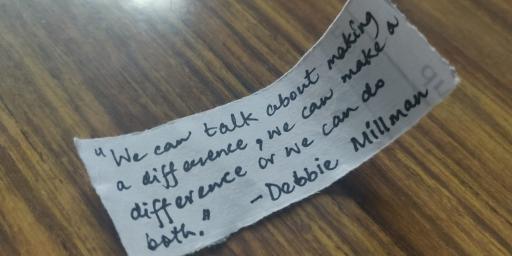 "We can talk about making
a difference, we can make a
difference or we can do
both."  - Debbie Millman